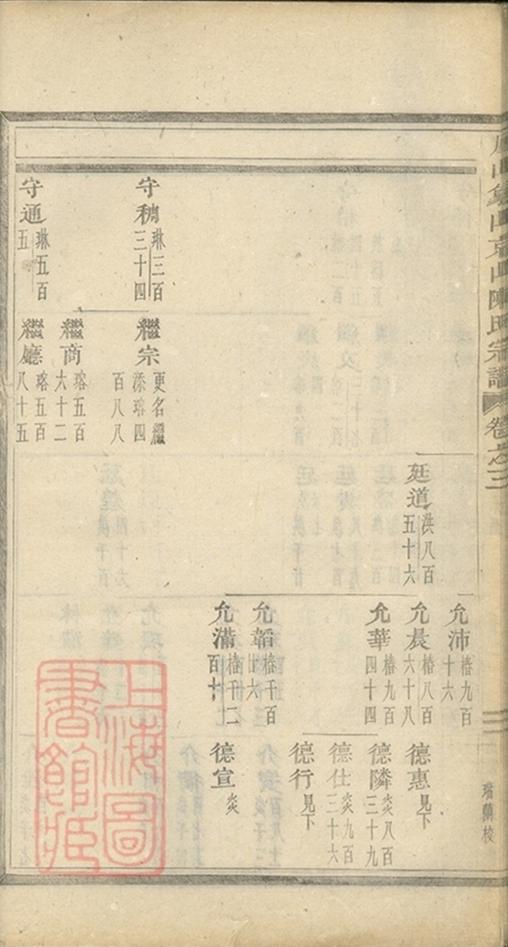 山陳氏宗譜
卷之三
瑞蘭校
廷道 洪八百五十六
允沛 椿九百十六
允晨 椿八百六十八
允華 椿九百四十四
允韜 椿千百廿六
允滿 椿千二百十
德惠 見下
德隣 炎八百三十九
德仕 炎九百三十六
德行 見下
德宣 炎
守穐 琳三百三十四
守通 琳五百五
繼宗 更名繼添瑢四百八八
繼商 瑢五百六十二
繼廳 瑢五百八十五
上海圖書館藏